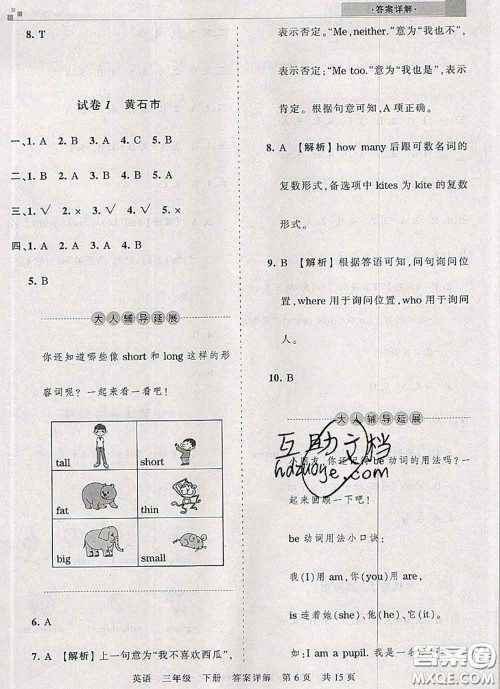 ·答案详解·
8. T
试卷1 黄石市
一、1. A 2. B 3. A 4. C 5. B
二、1. B 2. B 3. A 4. A 5. A
三、1. √ 2. × 3. √ 4. √ 5. ×
四、1. A 2. A 3. A 4. B
5. B
大人辅导延展
你还知道哪些像 short 和 long 这样的形
容词呢？一起来看一看吧！
tall short
fat thin
big small
6. A
7. A 【解析】上一句意为“我不喜欢西瓜”，
表示否定。“Me, neither.”意为“我也不”，
表示否定；“Me too.”意为“我也是”，表示
肯定。根据句意可知，A 项正确。
8. A 【解析】how many 后跟可数名词的
复数形式，备选项中 kites 为 kite 的复数
形式。
9. B 【解析】根据答语可知，问句询问位
置，where 用于询问位置，who 用于询问
人。
10. B
大人辅导延展
小朋友，你还记得 be 动词的用法吗？一
起来回顾一下吧！
be 动词用法小口诀：
我(I)用 am，你(you)用 are，
is 连着她(she)、他(he)、它(it)。
如：I am a pupil. 我是一名小学生。
互助文档
hdzuoye.com
英语 三年级 下册 答案详解 第6页 共15页
答案圈
MXQE.COM